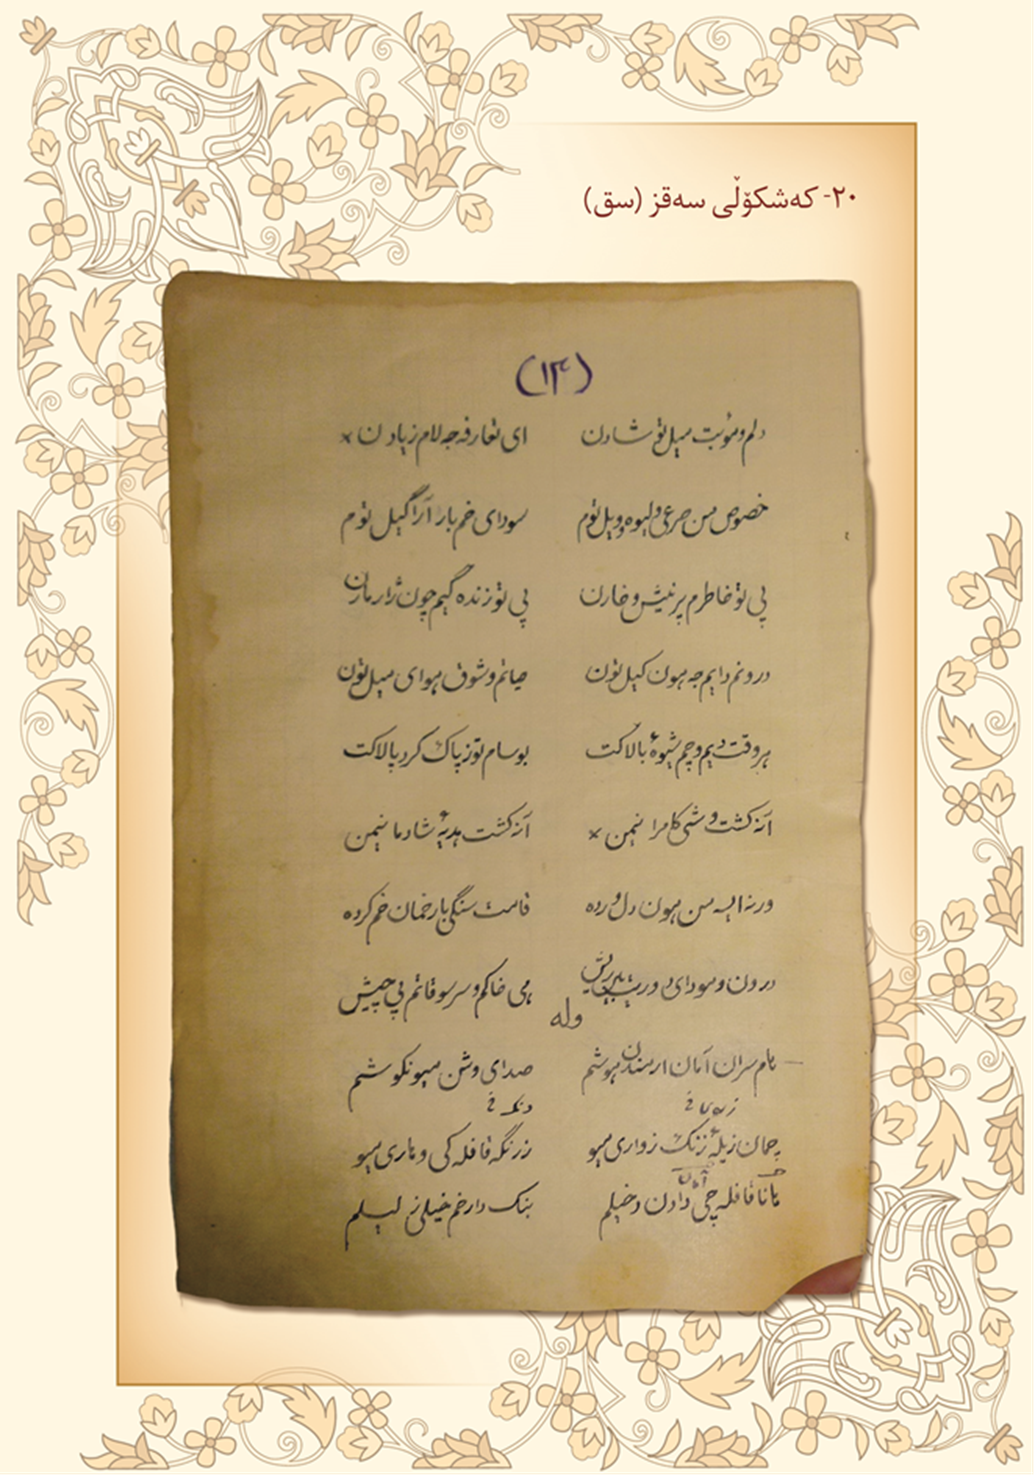 ٢٠- کەشکۆڵی سەقز (سق)
(١٤)
دلم و مؤبت میل تو شادن ای تعارفه جه لام زیادن ×
خصوص من صرعی و لیوه و ویل توم سودای خم بار آرا گیل توم
پی تو خاطرم پر نیش و خارن پی تو زنده گیم چون ژار مارن
درونم دایم جه هون کیل تون حیاتم و شوق هوای میل تون
هر وقت دیم و چم شیوهٔ بالاکت بوسام توز پاک کرد پالاکت
آنه کشت و شی کامرانیمن × آنه کشت هدیهٔ شادمانیمن
ورنه ایسه من هون دل ورده قامت سنگی بار خمان خم کرده
درون و سودای دوریت ریش می خاکم و سر سوقاتم پی چیش
وله
نام سران آمان ار مندن هوشم صدای وشن میو نگوشم
دنک
چمان زیلهٔ زنک زواری میو زرنگه قافله کی و باری میو
آمان
مانا قافله چی دادن دخیلم بنک دار خم خیلی لیلم